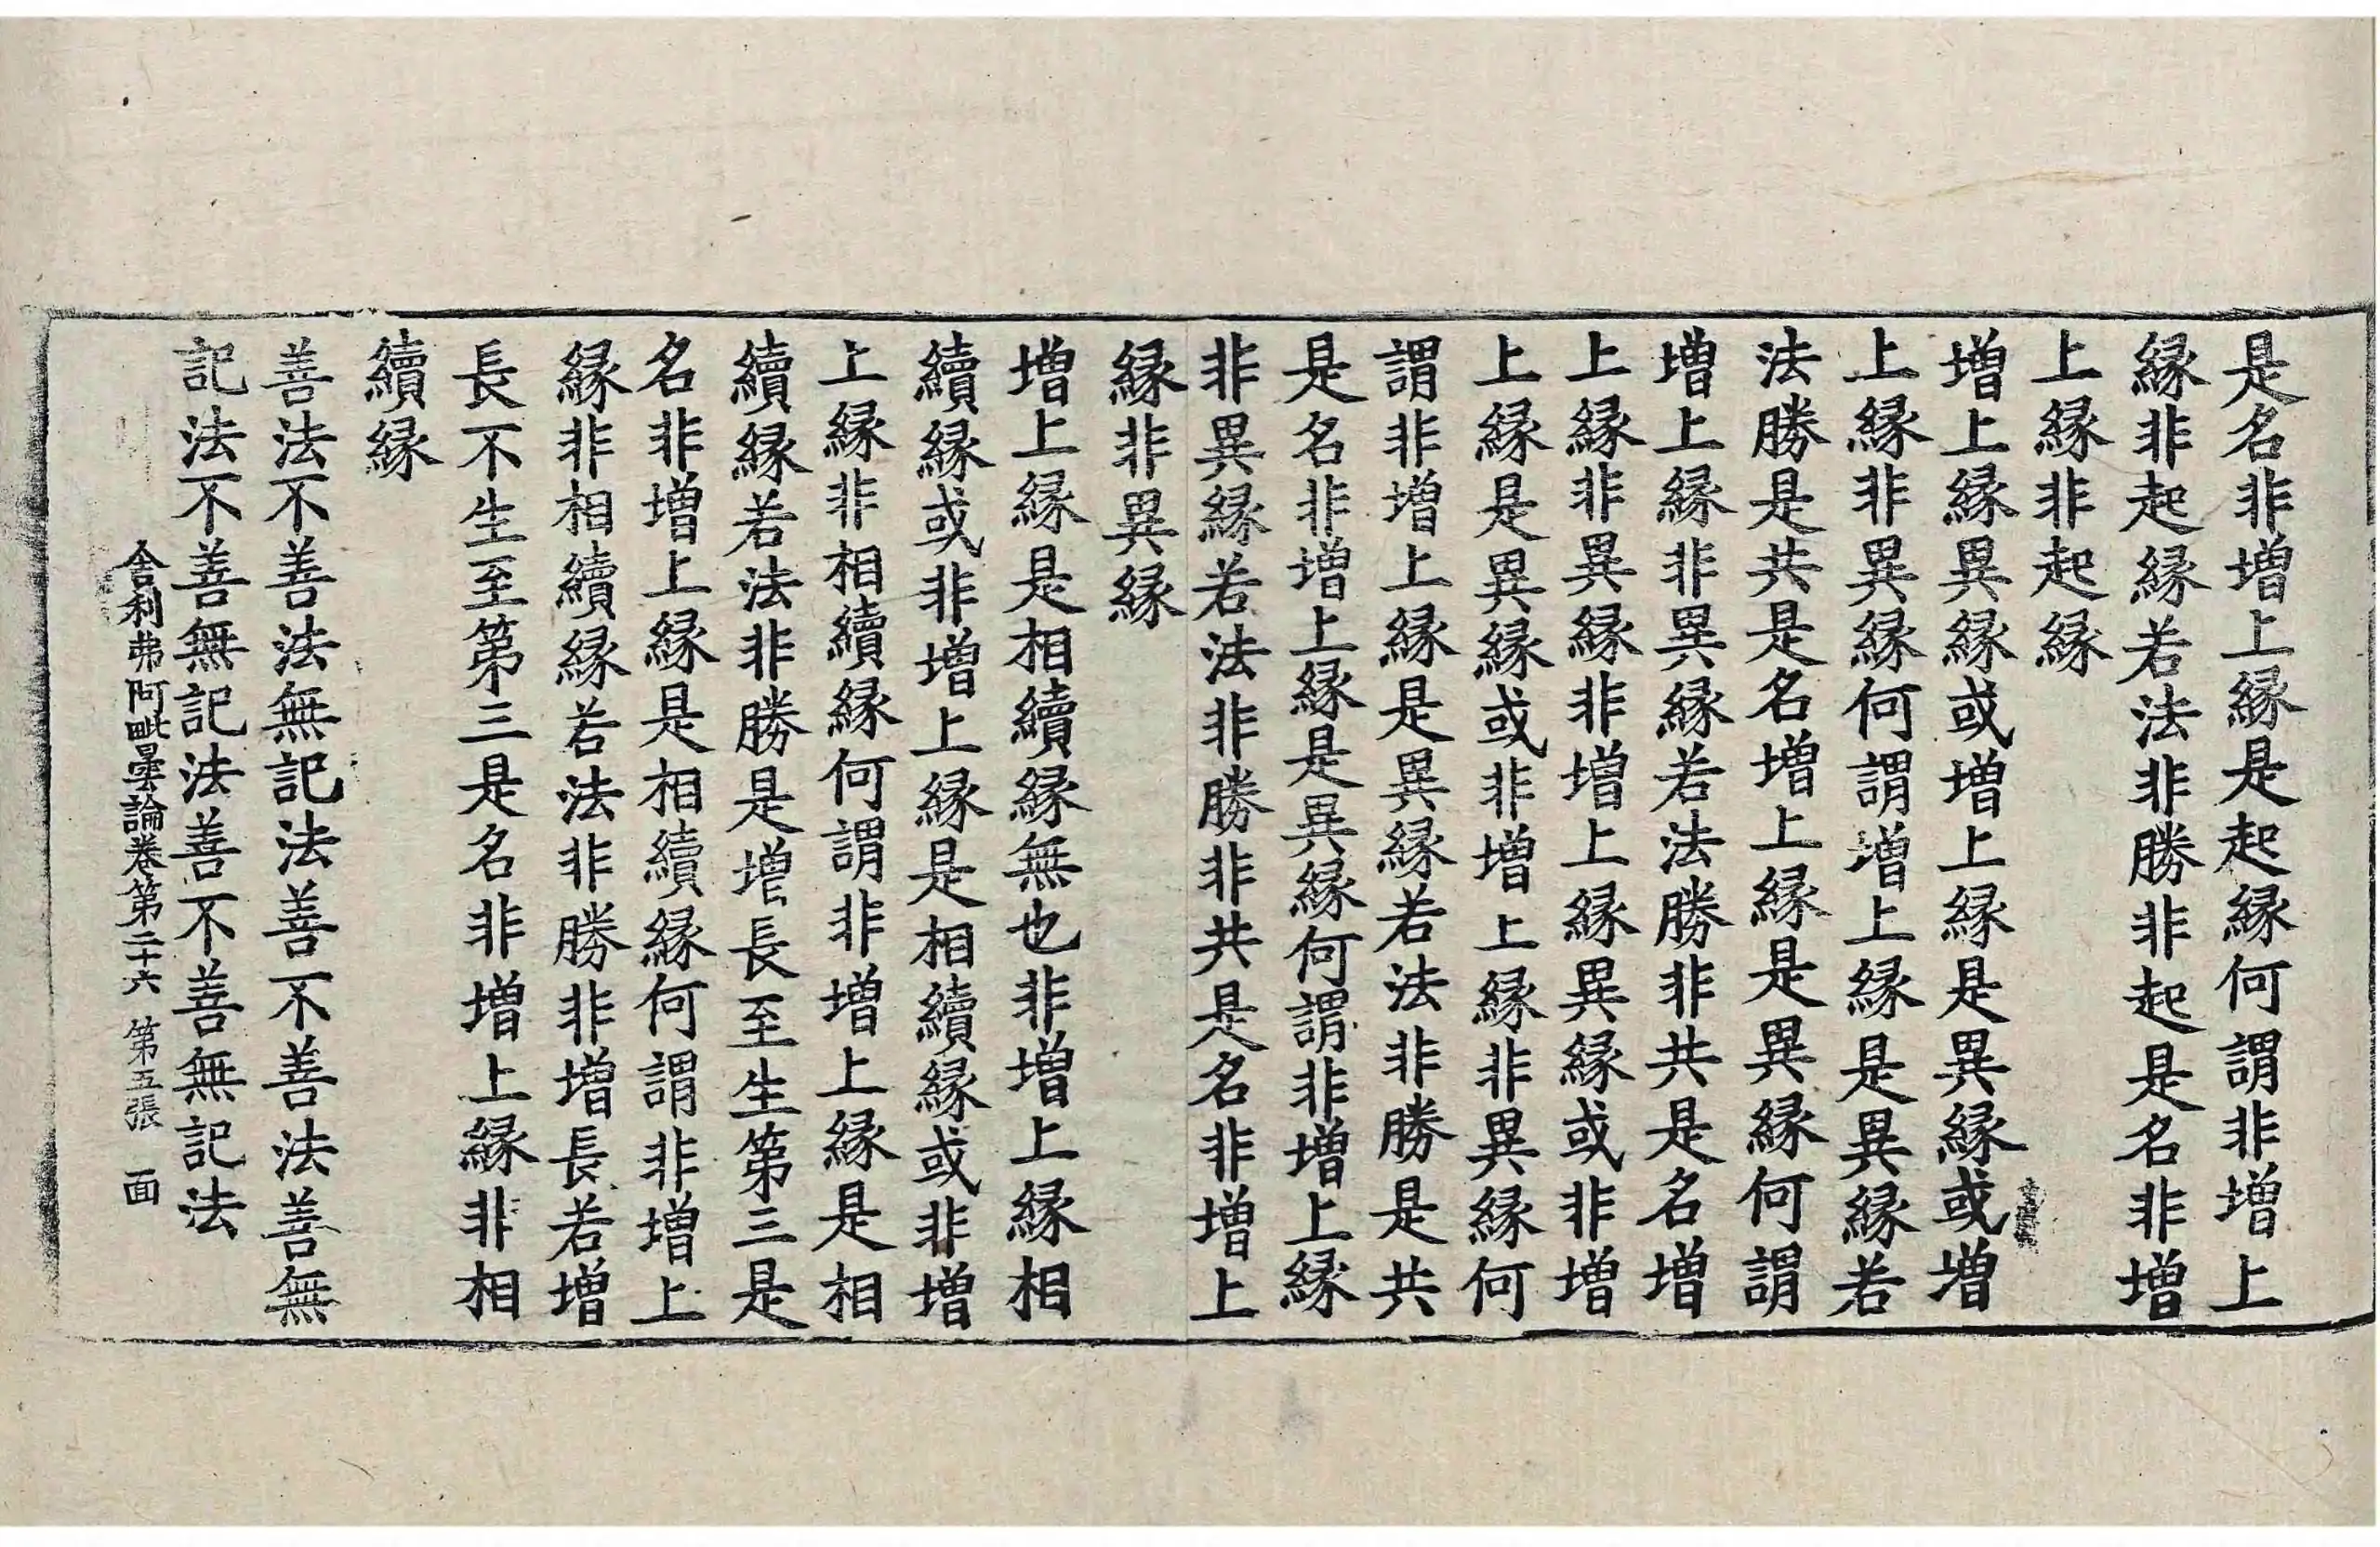 是名非增上縁是起縁何謂非增上
縁非起縁若法非勝非起是名非增
上縁非起縁
增上縁異縁或增上縁是異縁或增
上縁非異縁何謂增上縁是異縁若
法勝是共是名增上縁是異縁何謂
增上縁非異縁若法勝非共是名增
上縁非異縁非增上縁異縁或非增
上縁是異縁或非增上縁非異縁何
謂非增上縁是異縁若法非勝是共
是名非增上縁是異縁何謂非增上縁
非異縁若法非勝非共是名非增上
縁非異縁
增上縁是相續縁無也非增上縁相
續縁或非增上縁是相續縁或非增
上縁非相續縁何謂非增上縁是相
續縁若法非勝是增長至生第三是
名非增上縁是相續縁何謂非增上
縁非相續縁若法非勝非增長若增
長不生至第三是名非增上縁非相
續縁
善法不善法無記法善不善法善無
記法不善無記法善不善無記法
舍利弗阿毗曇論卷第二十六 第五張 面